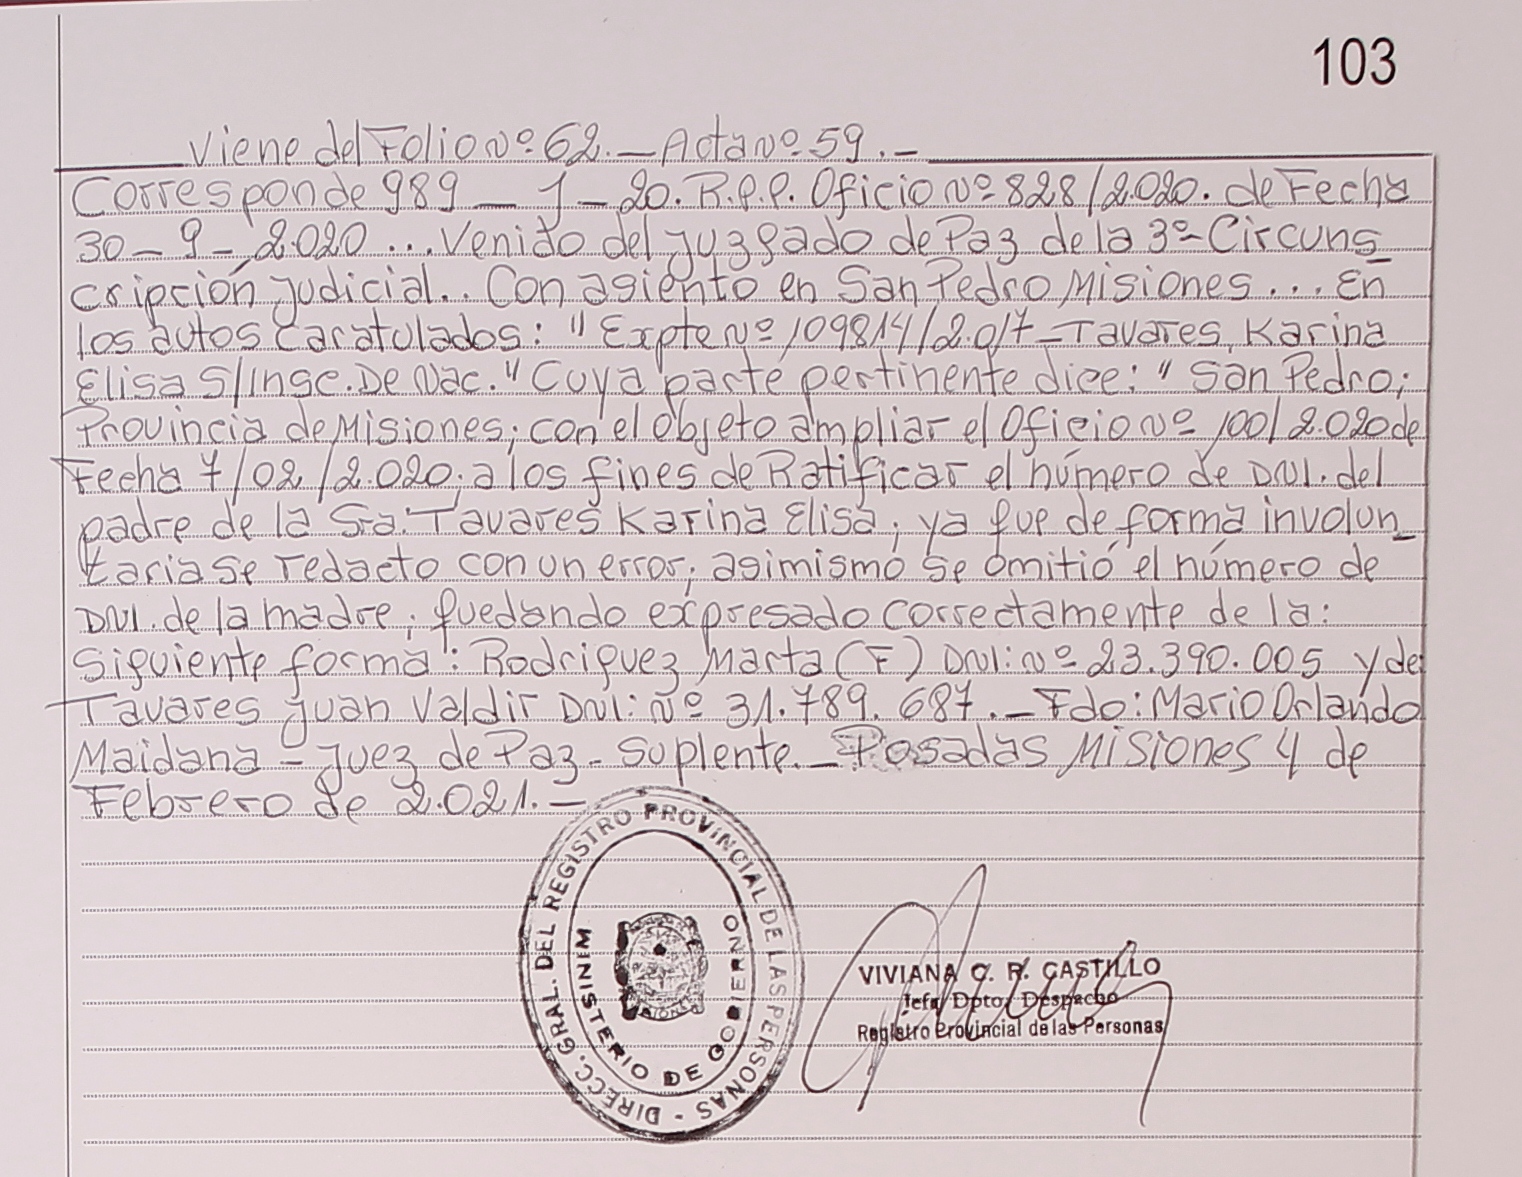 103
Viene del Folio Nº 62.— Acta Nº 59.—
Corresponde 989 — J — 20. R.P.P. Oficio Nº 828/2.020. de Fecha
30 — 9 — 2.020 ... Venido del Juzgado de Paz de la 3ª Circuns_
cripción Judicial.. Con asiento en San Pedro Misiones ... En
los autos Caratulados: "Expte Nº 109814/2.017 — Tavares, Karina
Elisa S/Insc. De Nac." Cuya parte pertinente dice: " San Pedro;
Provincia de Misiones; con el objeto ampliar el Oficio Nº 100/2.020 de
Fecha 7/02/2.020; a los fines de Ratificar el número de DNI. del
padre de la Sra. Tavares Karina Elisa; ya que de forma involun_
taria se redacto con un error; asimismo se omitió el número de
DNI. de la madre; quedando expresado correctamente de la:
Siguiente forma: Rodriguez Marta (F) DNI: Nº 23.390.005 y de
Tavares Juan Valdir DNI: Nº 31.789.687.— Fdo: Mario Orlando
Maidana — Juez de Paz — Suplente.— Posadas Misiones 4 de
Febrero de 2.021.—
DIRECC. GRAL. DEL REGISTRO PROVINCIAL DE LAS PERSONAS -
MINISTERIO DE GOBIERNO
VIVIANA C. R. CASTILLO
Jefa Dpto. Despacho
Registro Provincial de las Personas